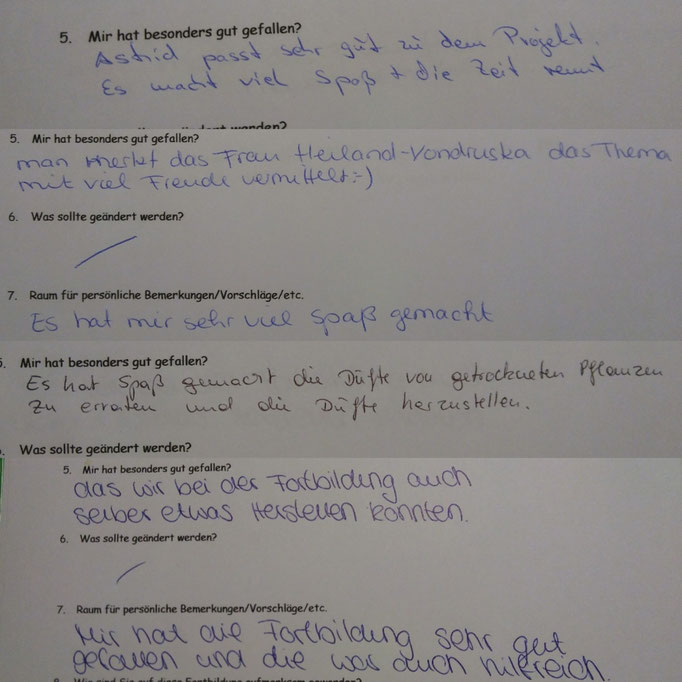 5. Mir hat besonders gut gefallen?
Astrid passt sehr gut zu dem Projekt.
Es macht viel Spaß + die Zeit rennt
werden?
5. Mir hat besonders gut gefallen?
man merkt das Frau Heiland-Vondruska das Thema
mit viel Freude vermittelt:-)
6. Was sollte geändert werden?
7. Raum für persönliche Bemerkungen/Vorschläge/etc.
Es hat mir sehr viel Spaß gemacht
5. Mir hat besonders gut gefallen?
Es hat Spaß gemacht die Düfte von getrockneten Pflanzen
zu erraten und die Düfte herzustellen.
Was sollte geändert werden?
5. Mir hat besonders gut gefallen?
das wir bei der Fortbildung auch
selber etwas Herstellen konnten.
6. Was sollte geändert werden?
7. Raum für persönliche Bemerkungen/Vorschläge/etc.
Mir hat die Fortbildung sehr gut
gefallen und die war auch hilfreich.
8. Wie sind Sie auf diese Fortbildung aufmerksam geworden?